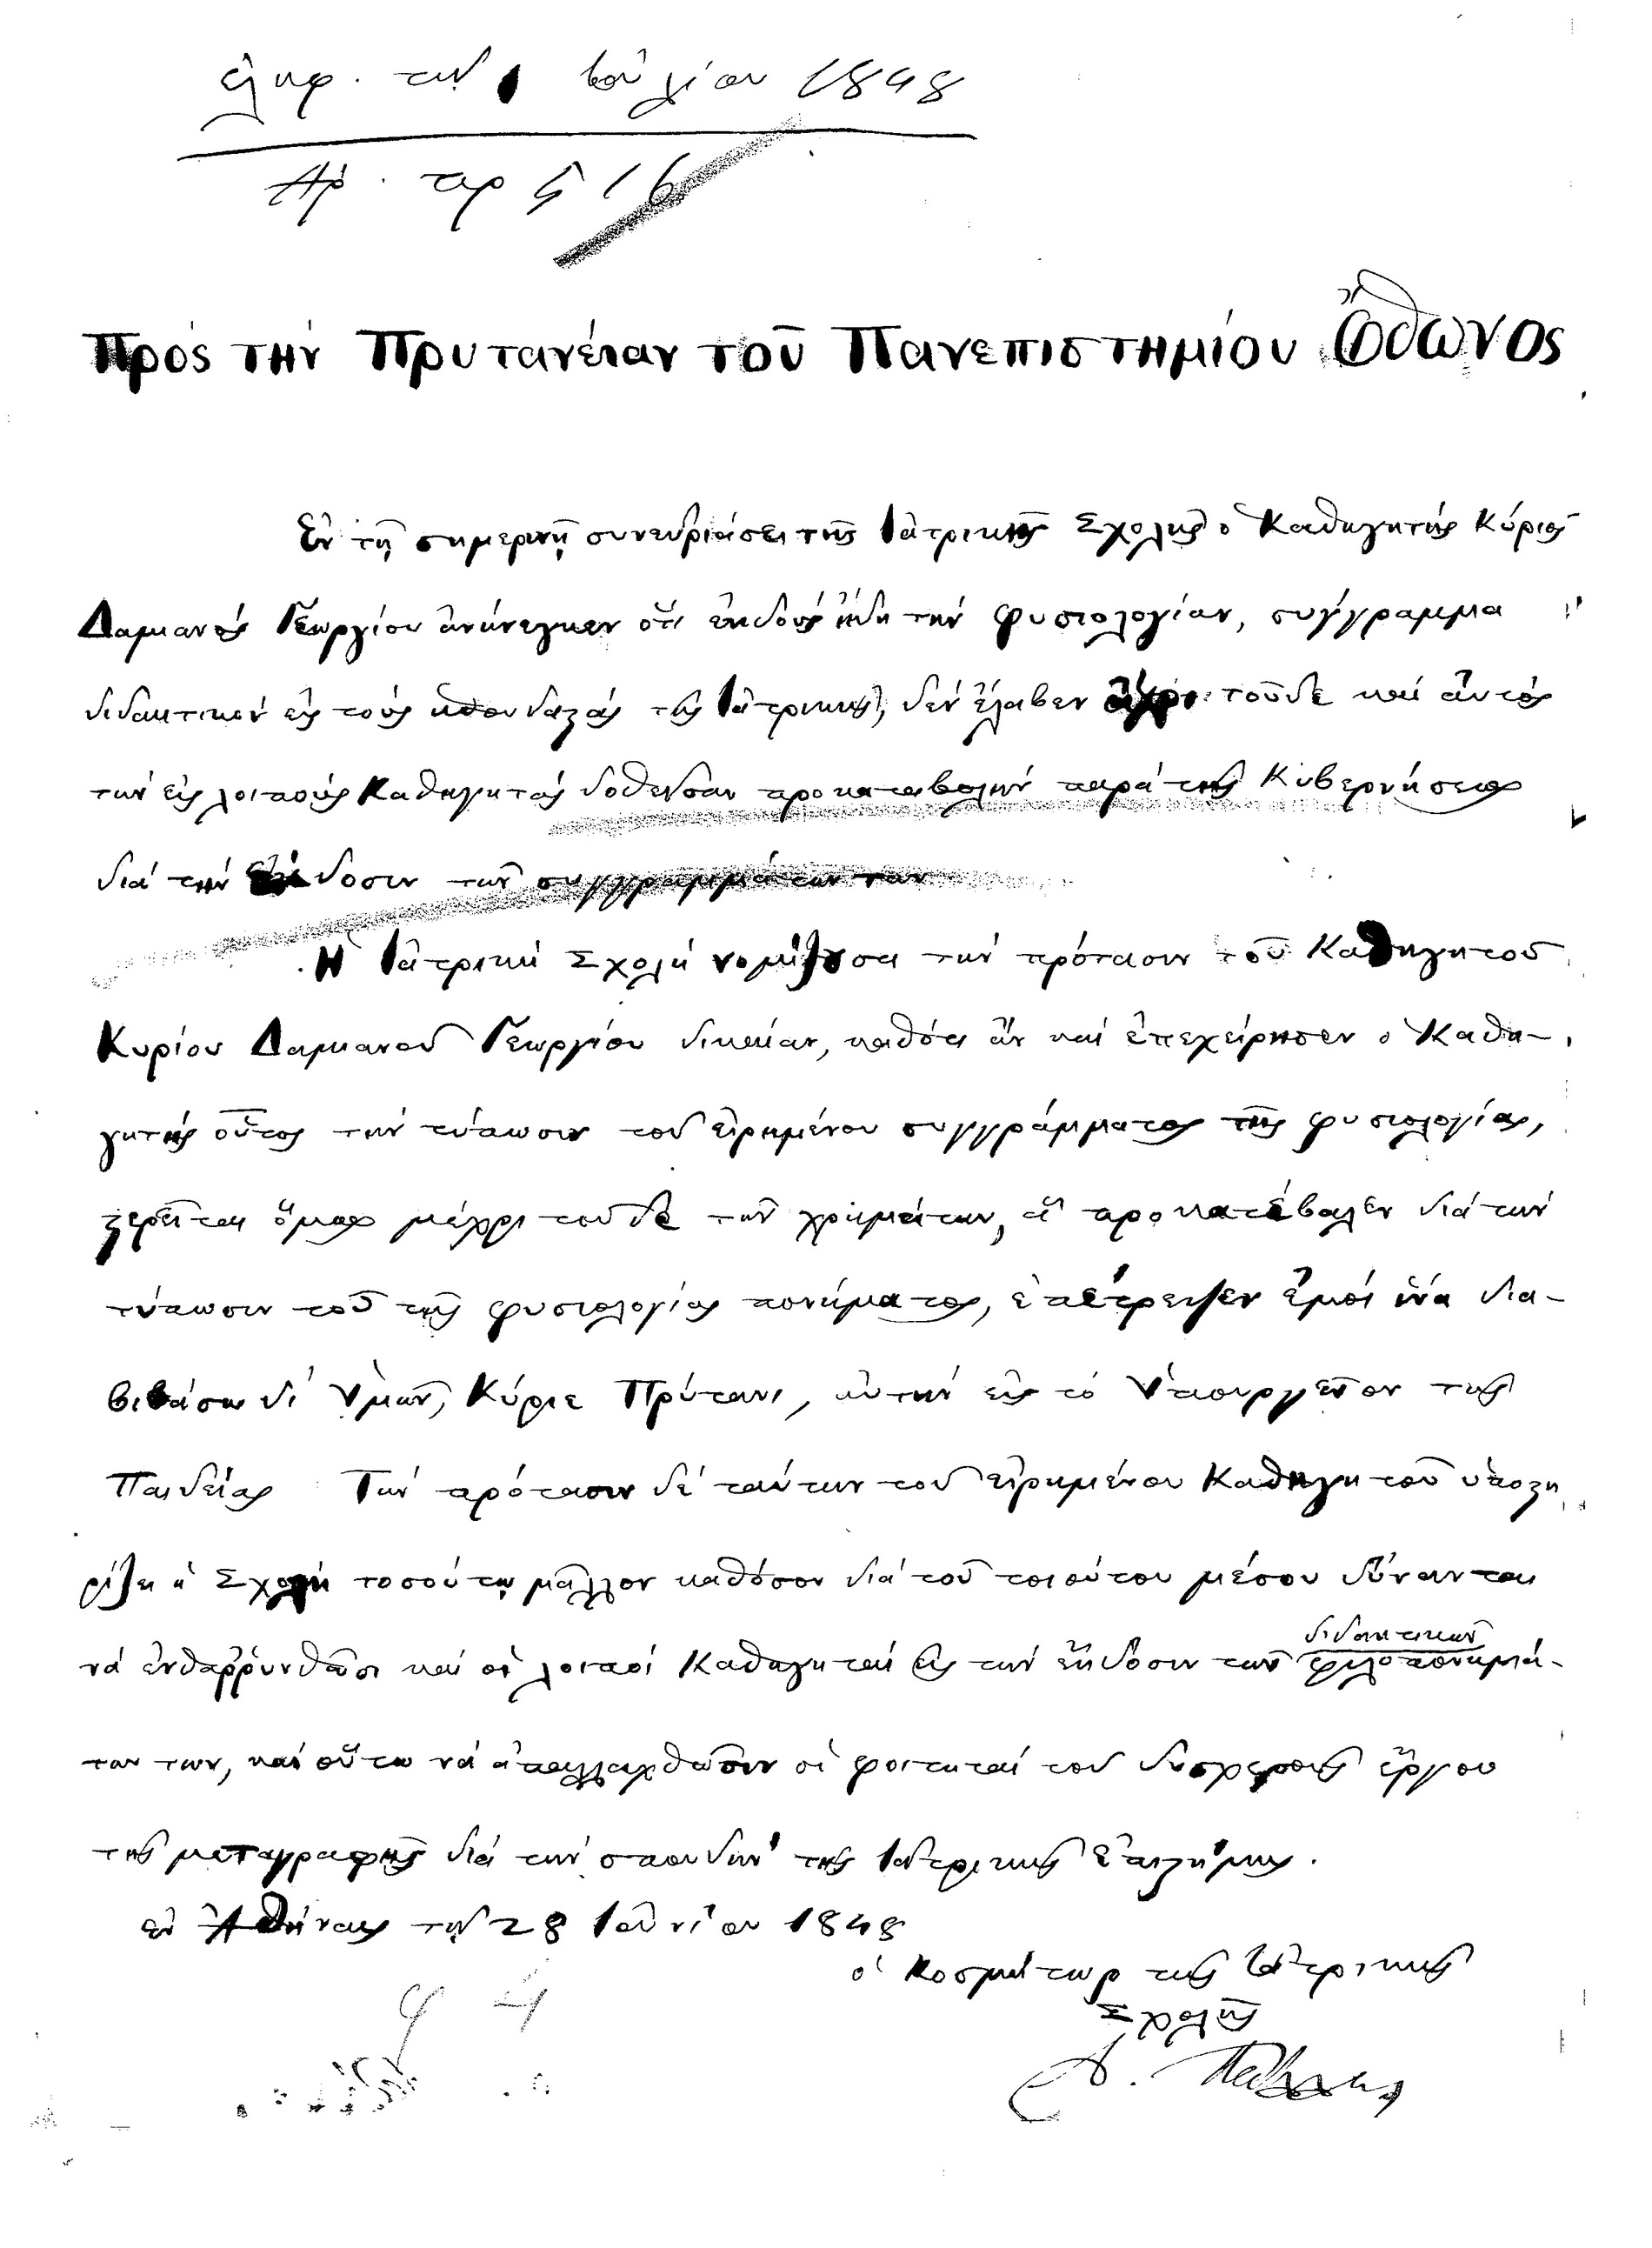 ἐλήφ. τῇ 1 Ἰουλίου 1848
Ἀρ. πρ 516
Πρὸς τὴν Πρυτανείαν τοῦ Πανεπιστημίου Ὄθωνος
Ἐν τῇ σημερινῇ συνεδριάσει τῆς Ἰατρικῆς Σχολῆς ὁ Καθηγητὴς Κύριος
Δαμιανὸς Γεωργίου ἀνήνεγκεν ὅτι ἐκδοὺς ἤδη τὴν φυσιολογίαν, σύγγραμμα
διδακτικὸν εἰς τοὺς σπουδαστὰς τῆς Ἰατρικῆς, δὲν ἔλαβεν ἄχρι τοῦδε καὶ αὐτὸς
τὴν εἰς λοιποὺς Καθηγητὰς δοθεῖσαν προκαταβολὴν παρὰ τῆς Κυβερνήσεως
διὰ τὴν ἔκδοσιν τῶν συγγραμμάτων των
Ἡ Ἰατρικὴ Σχολὴ νομίζουσα τὴν πρότασιν τοῦ Καθηγητοῦ
Κυρίου Δαμιανοῦ Γεωργίου δικαίαν, καθότι ἂν καὶ ἐπεχείρησεν ὁ Καθη-
γητὴς οὗτος τὴν τύπωσιν τοῦ εἰρημένου συγγράμματος τῆς φυσιολογίας,
στερεῖται ὅμως μέχρι τοῦδε τῶν χρημάτων, ἃ προκατέβαλεν διὰ τὴν
τύπωσιν τοῦ τῆς φυσιολογίας πονήματος, ἐπέτρεψεν ἐμοὶ ἵνα δια-
βιβάσω δι' Ὑμῶν, Κύριε Πρύτανι, αὐτὴν εἰς τὸ Ὑπουργεῖον τῆς
Παιδείας Τὴν πρότασιν δὲ ταύτην τοῦ εἰρημένου Καθηγητοῦ ὑποστη
ρίζει ἡ Σχολὴ τοσούτῳ μᾶλλον καθόσον διὰ τοῦ τοιούτου μέσου δύνανται
νὰ ἐνθαῤῥυνθῶσι καὶ οἱ λοιποὶ Καθηγηταὶ εἰς τὴν ἔκδοσιν τῶν διδακτικῶν φιλοπονημά-
των των, καὶ οὕτω νὰ ἀπαλλαχθῶσιν οἱ φοιτηταὶ τοῦ δυσχεροῦς ἔργου
τῆς μεταγραφῆς διὰ τὴν σπουδὴν τῆς Ἰατρικῆς Ἐπιστήμης.
ἐν Ἀθήναις τῇ 28 Ἰουνίου 1848
ὁ Κοσμήτωρ τῆς Ἰατρικῆς
Σχολῆς